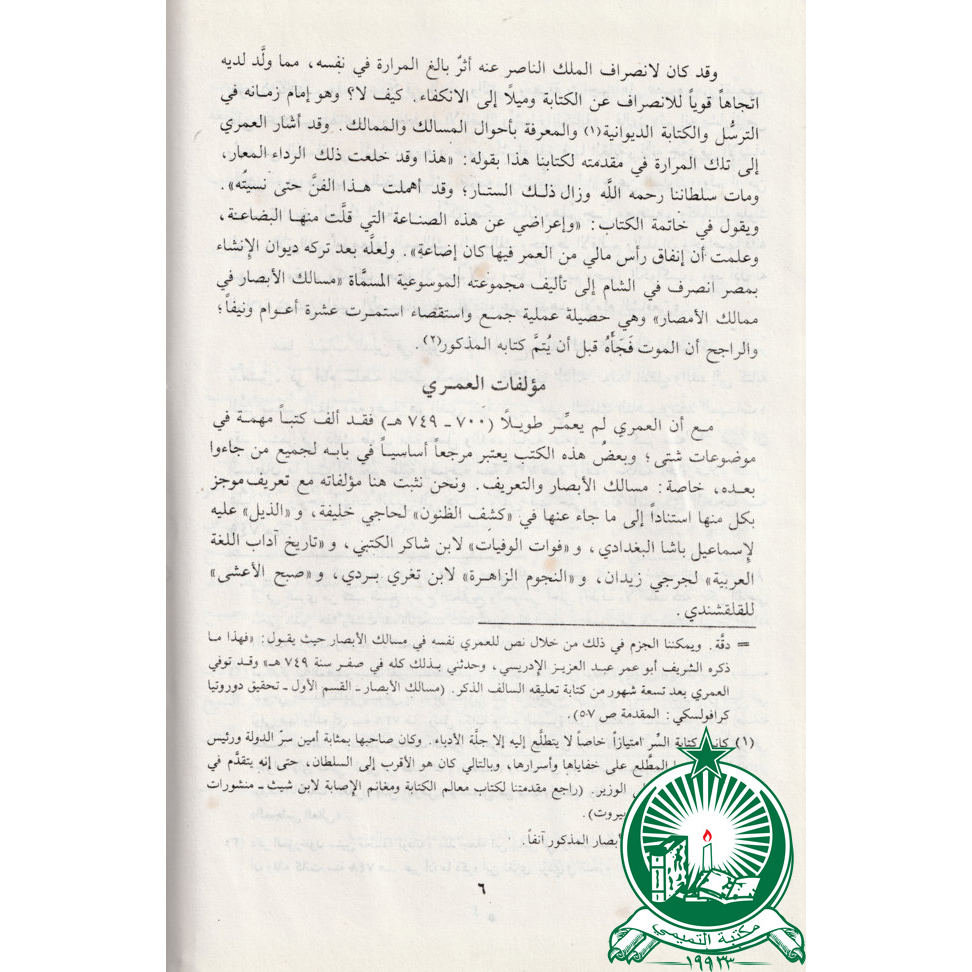 وقد كان لانصراف الملك الناصر عنه أثرٌ بالغ المرارة في نفسه، مما ولَّد لديه
اتجاهاً قوياً للانصراف عن الكتابة وميلاً إلى الانكفاء. كيف لا؟ وهو إمام زمانه في
الترسُّل والكتابة الديوانية(١) والمعرفة بأحوال المسالك والممالك. وقد أشار العمري
إلى تلك المرارة في مقدمته لكتابنا هذا بقوله: «هذا وقد خلعت ذلك الرداء المعار،
ومات سلطاننا رحمه اللَّه وزال ذلك الستار؛ وقد أهملت هذا الفنَّ حتى نسيتُه».
ويقول في خاتمة الكتاب: «وإعراضي عن هذه الصناعة التي قلَّت منها البضاعة،
وعلمت أن إنفاق رأس مالي من العمر فيها كان إضاعةِ». ولعلَّه بعد تركه ديوان الإنشاء
بمصر انصرف في الشام إلى تأليف مجموعته الموسوعية المسمَّاة «مسالك الأبصار في
ممالك الأمصار» وهي حصيلة عملية جمع واستقصاء استمرت عشرة أعوام ونيفاً؛
والراجح أن الموت فَجَأَهُ قبل أن يُتمَّ كتابه المذكور(٢).
مؤلفات العمري
مع أن العمري لم يعمِّر طويلًا (٧٠٠ ـ ٧٤٩ هـ) فقد ألف كتباً مهمة في
موضوعات شتى؛ وبعضُ هذه الكتب يعتبر مرجعاً أساسياً في بابه لجميع من جاءوا
بعده، خاصة: مسالك الأبصار والتعريف. ونحن نثبت هنا مؤلفاته مع تعريف موجز
بكل منها استناداً إلى ما جاء عنها في «كشف الظنون» لحاجي خليفة، و«الذيل» عليه
لإسماعيل باشا البغدادي، و«فوات الوفيات» لابن شاكر الكتبي، و«تاريخ آداب اللغة
العربية» لجرجي زيدان، و«النجوم الزاهرة» لابن تغري بردي، و«صبح الأعشى»
للقلقشندي.
= دقَّة. ويمكننا الجزم في ذلك من خلال نص للعمري نفسه في مسالك الأبصار حيث يقول: «فهذا ما
ذكره الشريف أبو عمر عبد العزيز الإدريسي، وحدثني بذلك كله في صفر سنة ٧٤٩ هـ» وقد توفي
العمري بعد تسعة شهور من كتابة تعليقه السالف الذكر. (مسالك الأبصار ـ القسم الأول ـ تحقيق دوروتيا
كرافولسكي: المقدمة ص ٥٠٧).
(١) كانت كتابة السِّر امتيازاً خاصاً لا يتطلَّع إليه إلا جلَّة الأدباء. وكان صاحبها بمثابة أمين سرّ الدولة ورئيس
المطَّلع على خفاياها وأسرارها، وبالتالي كان هو الأقرب إلى السلطان، حتى إنه يتقدَّم في
الوزير. (راجع مقدمتنا لكتاب معالم الكتابة ومغانم الإصابة لابن شيث ـ منشورات
بيروت).
الأبصار المذكور آنفاً.
٦
مكتبة التميمي
١٩٩٣٣